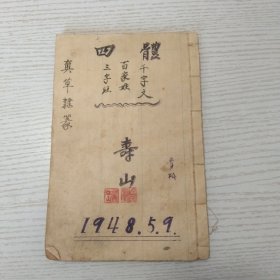 四體
千字文
百家姓
三字經
真草隸篆
壽山
1948.5.9.